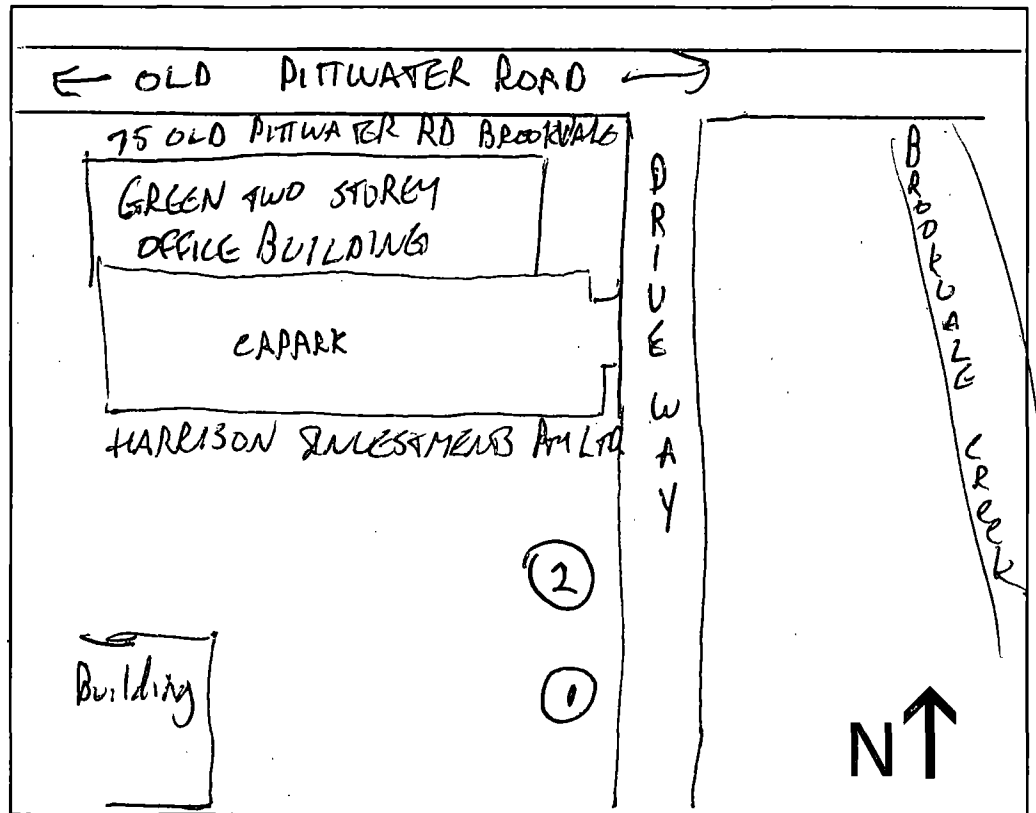 ← OLD PITTWATER ROAD →
75 OLD PITTWATER RD BROOKVALE
GREEN TWO STOREY
OFFICE BUILDING
CAPARK
HARRISON INVESTMENTS PTY LTD
DRIVE WAY
BROOKVALE CREEK
2
1
Building
N↑